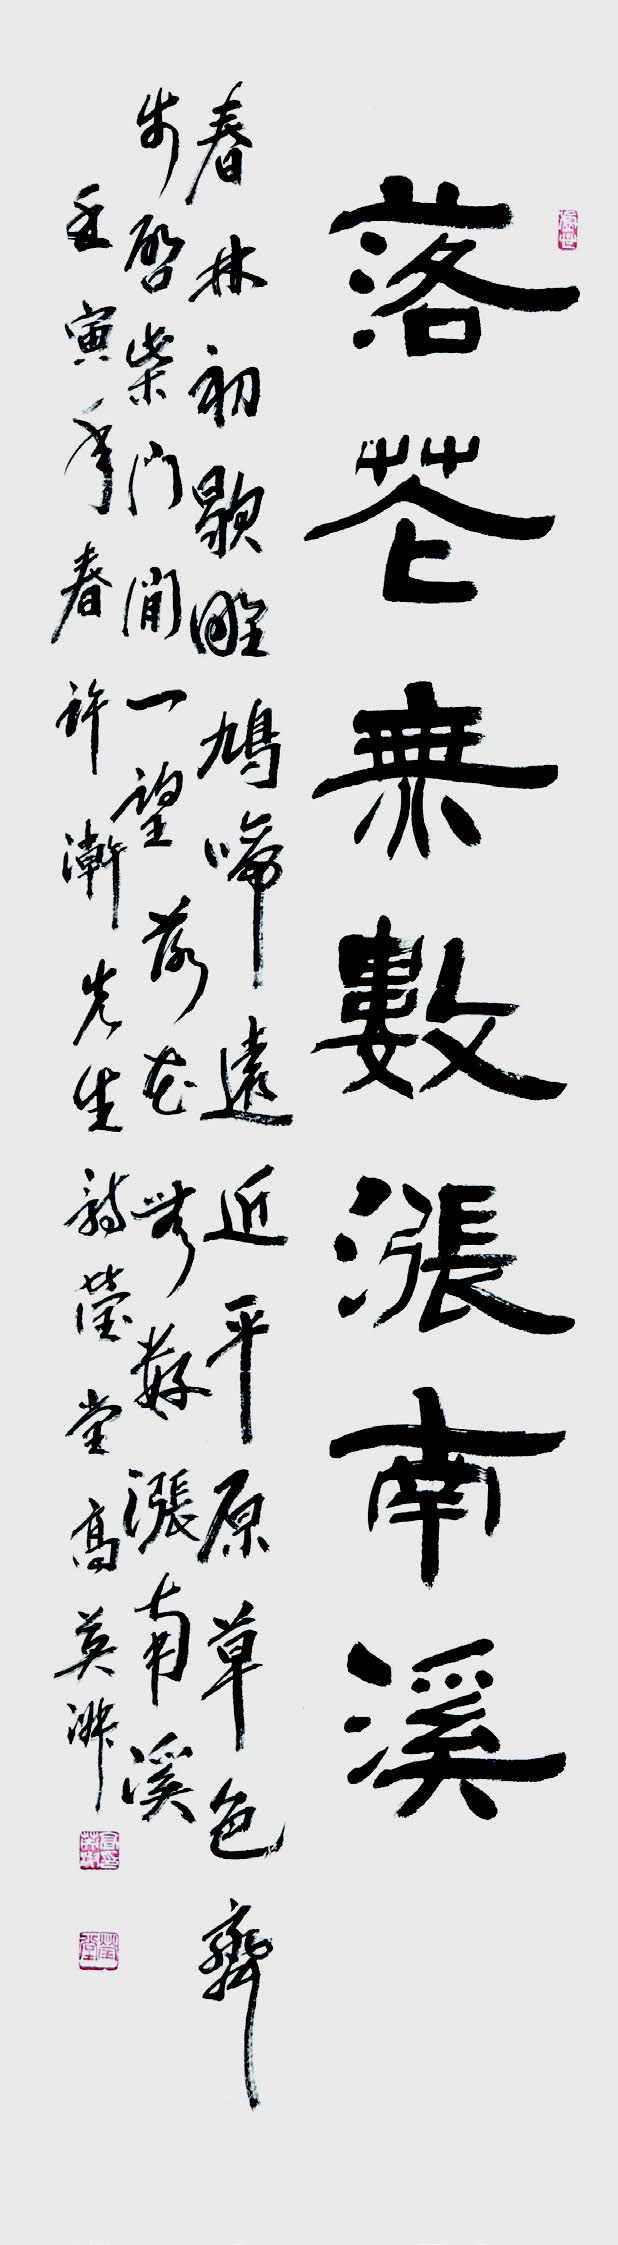 落花無數漲南溪
春林初歇雎鳩啼遠近平原草色齊
步啓柴門閒一望落花無數漲南溪
壬寅年春許瀚先生詩瑩堂高英